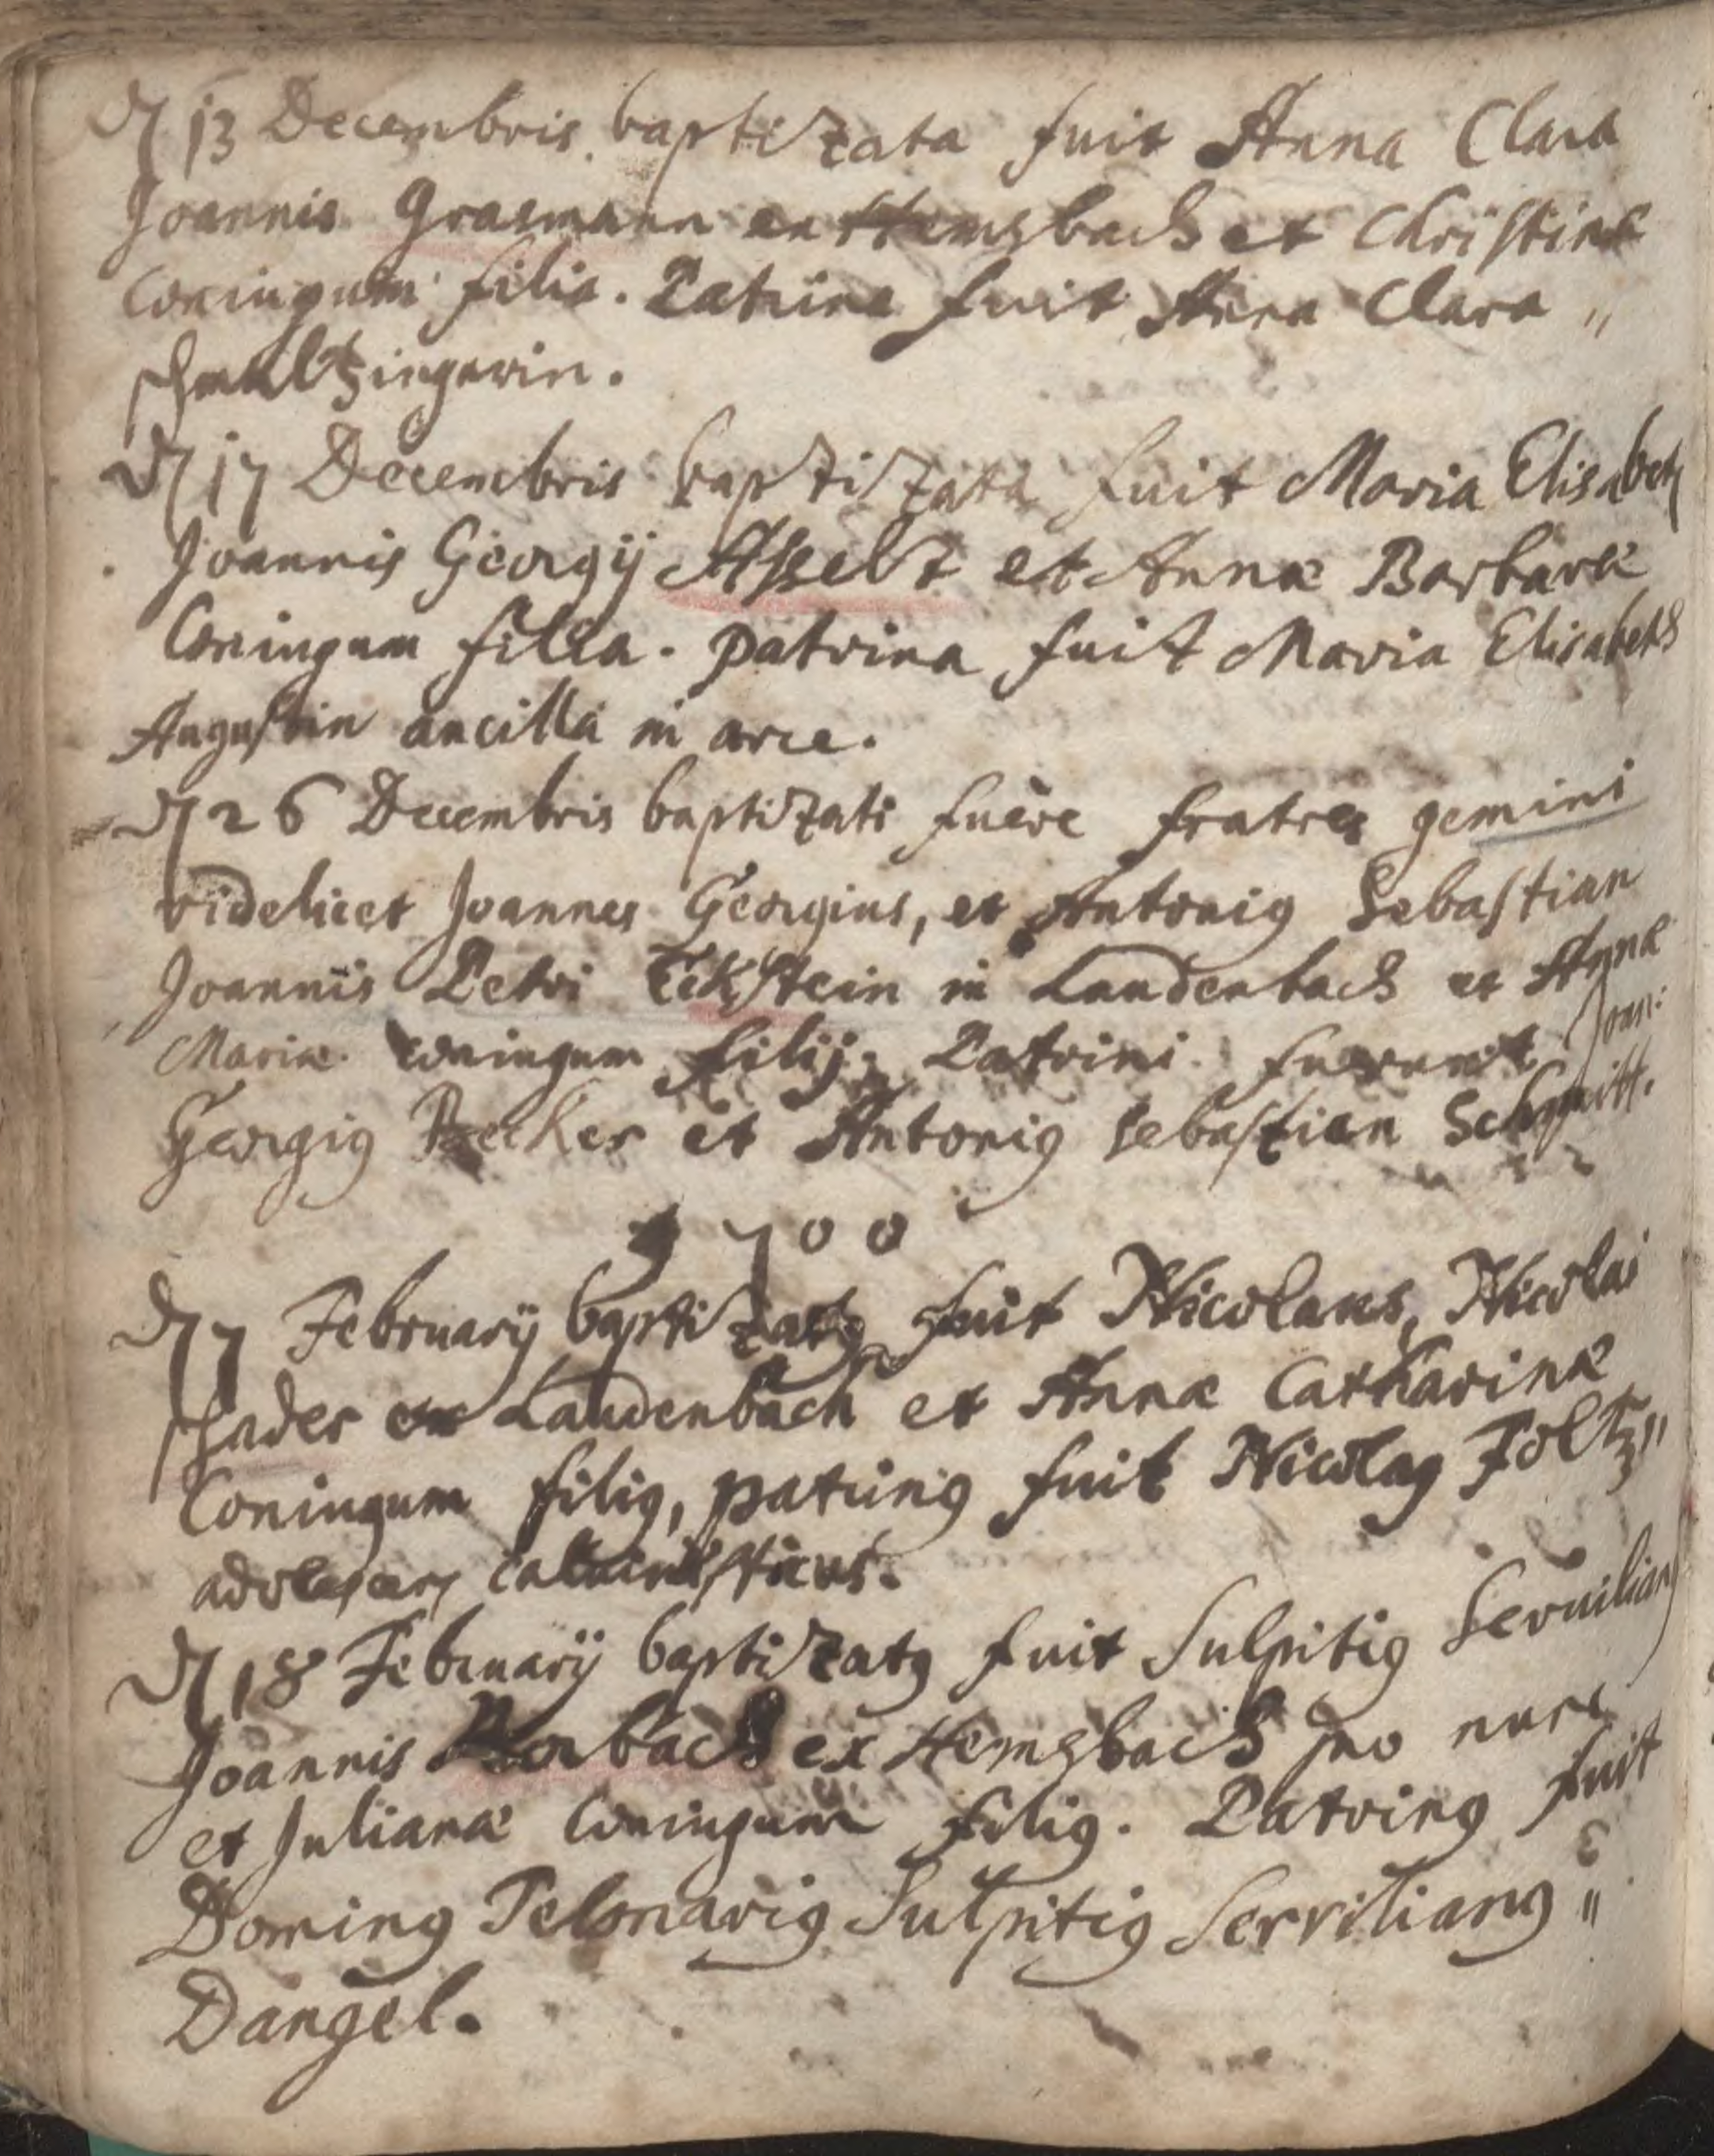 d 13 Decembris baptizata fuit Anna Clara
Joannis Grasmann ex Hemsbach et Christinæ
Coniugum filia. Patrina fuit Anna Clara „
schmaltzingerin.
d 17 Decembris baptizata fuit Maria Elisabeth
Joannis Georgij Asselt et Annæ Barbaræ
Coniugum filia. patrina fuit Maria Elisabeth
Augustin ancilla in arce.
d 26 Decembris baptizati fuêre fratres gemini
videlicet Joannes Georgius, et Antonig Sebastian
Joannis Petri Eckstein in Laudenbach et Annæ
Mariæ coniugum filij; Patrini fuerunt Joan:
Georgig Becker et Antonig sebastian Schmitt.
1700
d 7 February baptizatg fuit Nicolaus, Nicolai
schader ex Laudenbach et Annæ Catharinæ
Coniugum filig, patring fuit Nicolag Foltz „
adolescens calvinisticus.
d 18 February baptizatg fuit Sulpitig Servilian
Joannis ex Hemsbach pro nunc
et Julianæ Coniugum filig. Patring fuit
Doming Telonarig Sulpitig Serviliang „
Dangel.